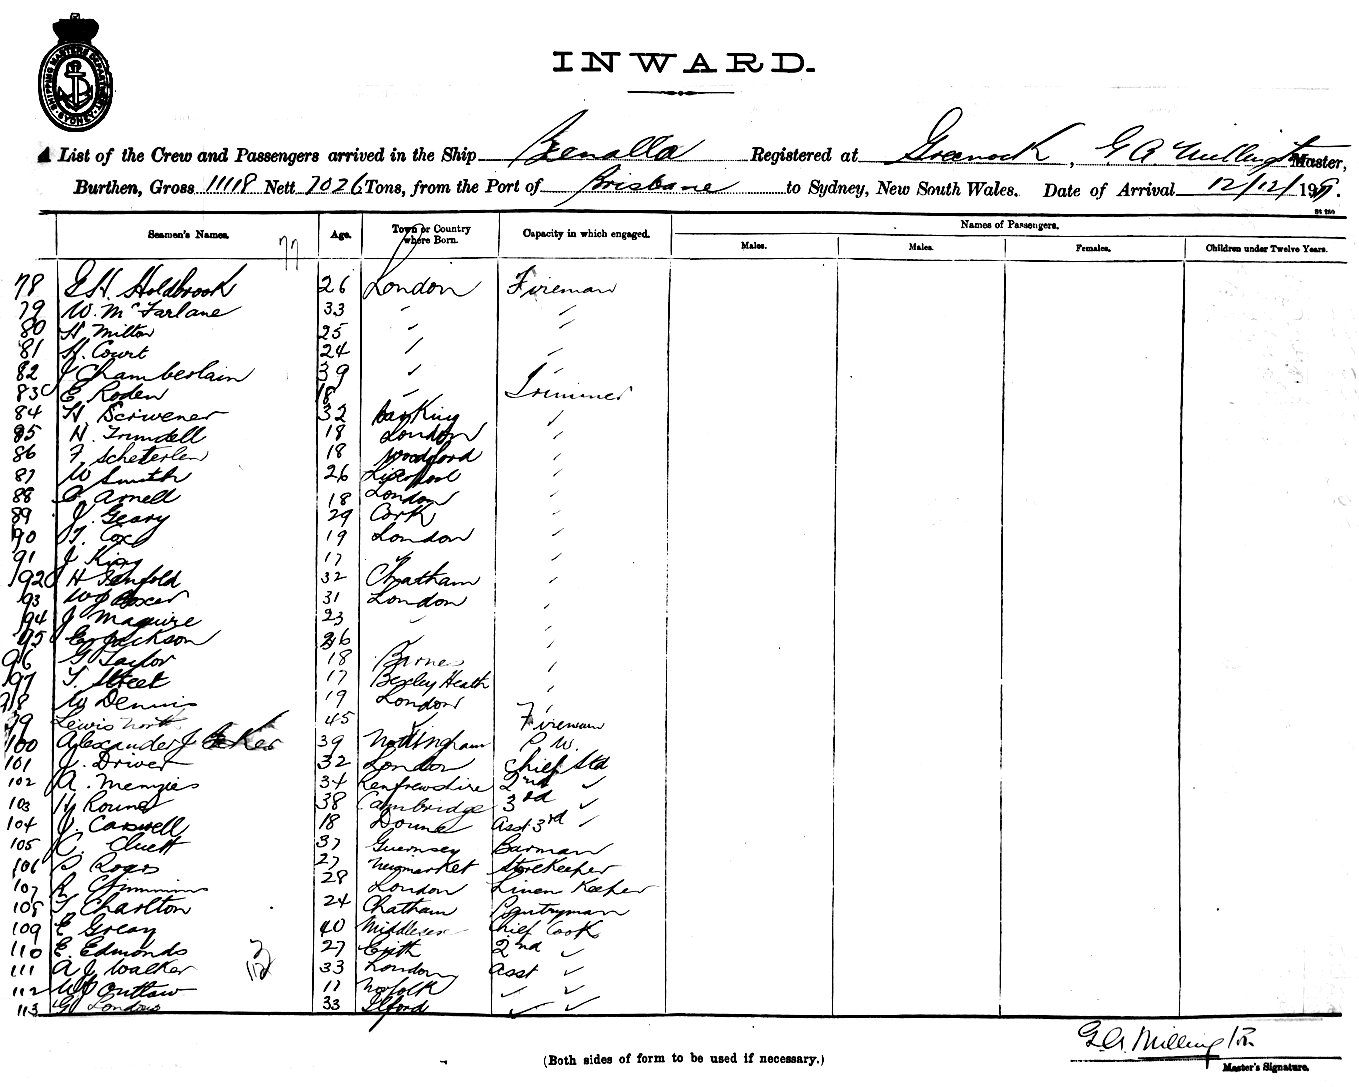 SHIPPING MASTERS DEPARTMENT SYDNEY
INWARD.
A List of the Crew and Passengers arrived in the Ship Benalla Registered at Greenock, G A Millington Master,
Burthen, Gross 11118 Nett 7026 Tons, from the Port of Brisbane to Sydney, New South Wales. Date of Arrival 12/12/19
Seamen's Names. Age. Town or Country where Born. Capacity in which engaged. Names of Passengers.
Males. Males. Females. Children under Twelve Years.
77
78 Holdbrook 26 London Fireman
79 W. McFarlane 33 " "
80 H Milton 25 " "
81 H. Court 24 " "
82 J Chamberlain 39 " "
83 E Roden 18 " Trimmer
84 H. Scrivener 32 Barking "
85 H. Trundell 18 London "
86 F Scheterlen 18 Woodford "
87 W Smith 26 Liverpool "
88 C Arnell 18 London "
89 J. Geary 29 Cork "
90 T. Cox 19 London "
91 J King 17 " "
92 H Penfold 32 Chatham "
93 W J Boxer 31 London "
94 J Maguire 23 " "
95 Jackson 26 " "
96 G Taylor 18 Barnes "
97 T. Street 17 Bexley Heath "
98 W Dennis 19 London "
99 Lewis North 45 " Fireman
100 Alexander J Baker 39 Nottingham P.W.
101 J. Driver 32 London Chief Std
102 A. Menzies 34 Renfrewshire 2nd "
103 H Round 38 Cambridge 3rd "
104 J. Carswell 18 Doune Asst 3rd "
105 C. Cluett 37 Guernsey Barman
106 Roger 27 Newmarket Storekeeper
107 R 28 London Linen Keeper
108 T Charlton 24 Chatham Pantryman
109 E Greay 40 Middlesex Chief Cook
110 E. Edmonds 27 Erith 2nd "
111 A J Walker 33 London Asst "
112 W Outlaw 17 Norfolk " "
113 G London 33 Ilford " "
G.A. Millington
(Both sides of form to be used if necessary.)
Master's Signature.